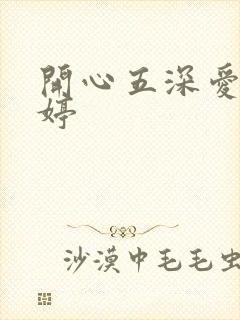 開心五深愛
婷
沙漠中毛毛虫